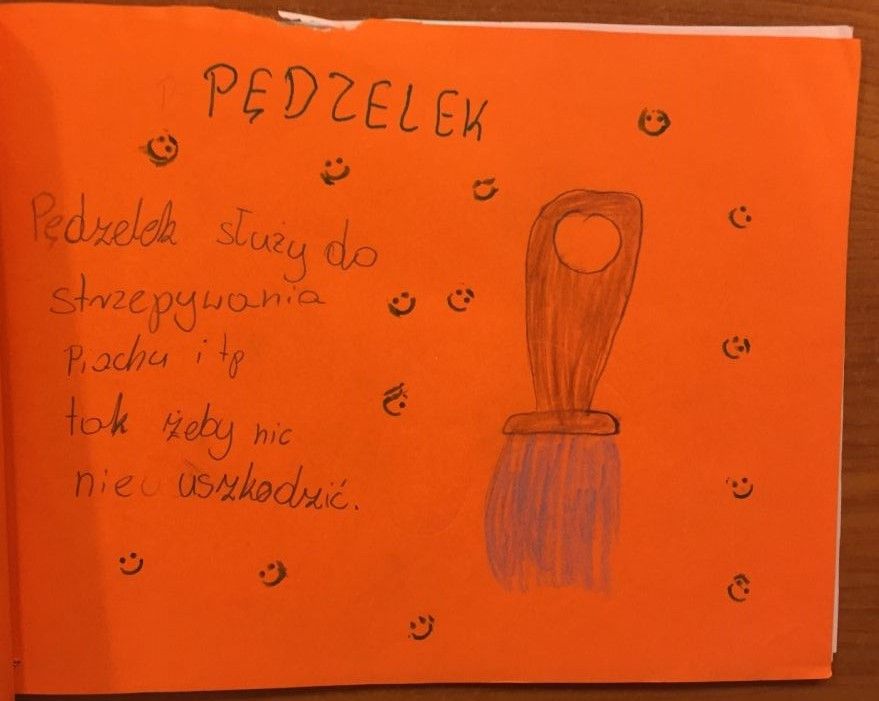 PĘDZELEK
Pędzelek służy do
strzepywania
piachu i tp
tak żeby nic
nie uszkodzić.